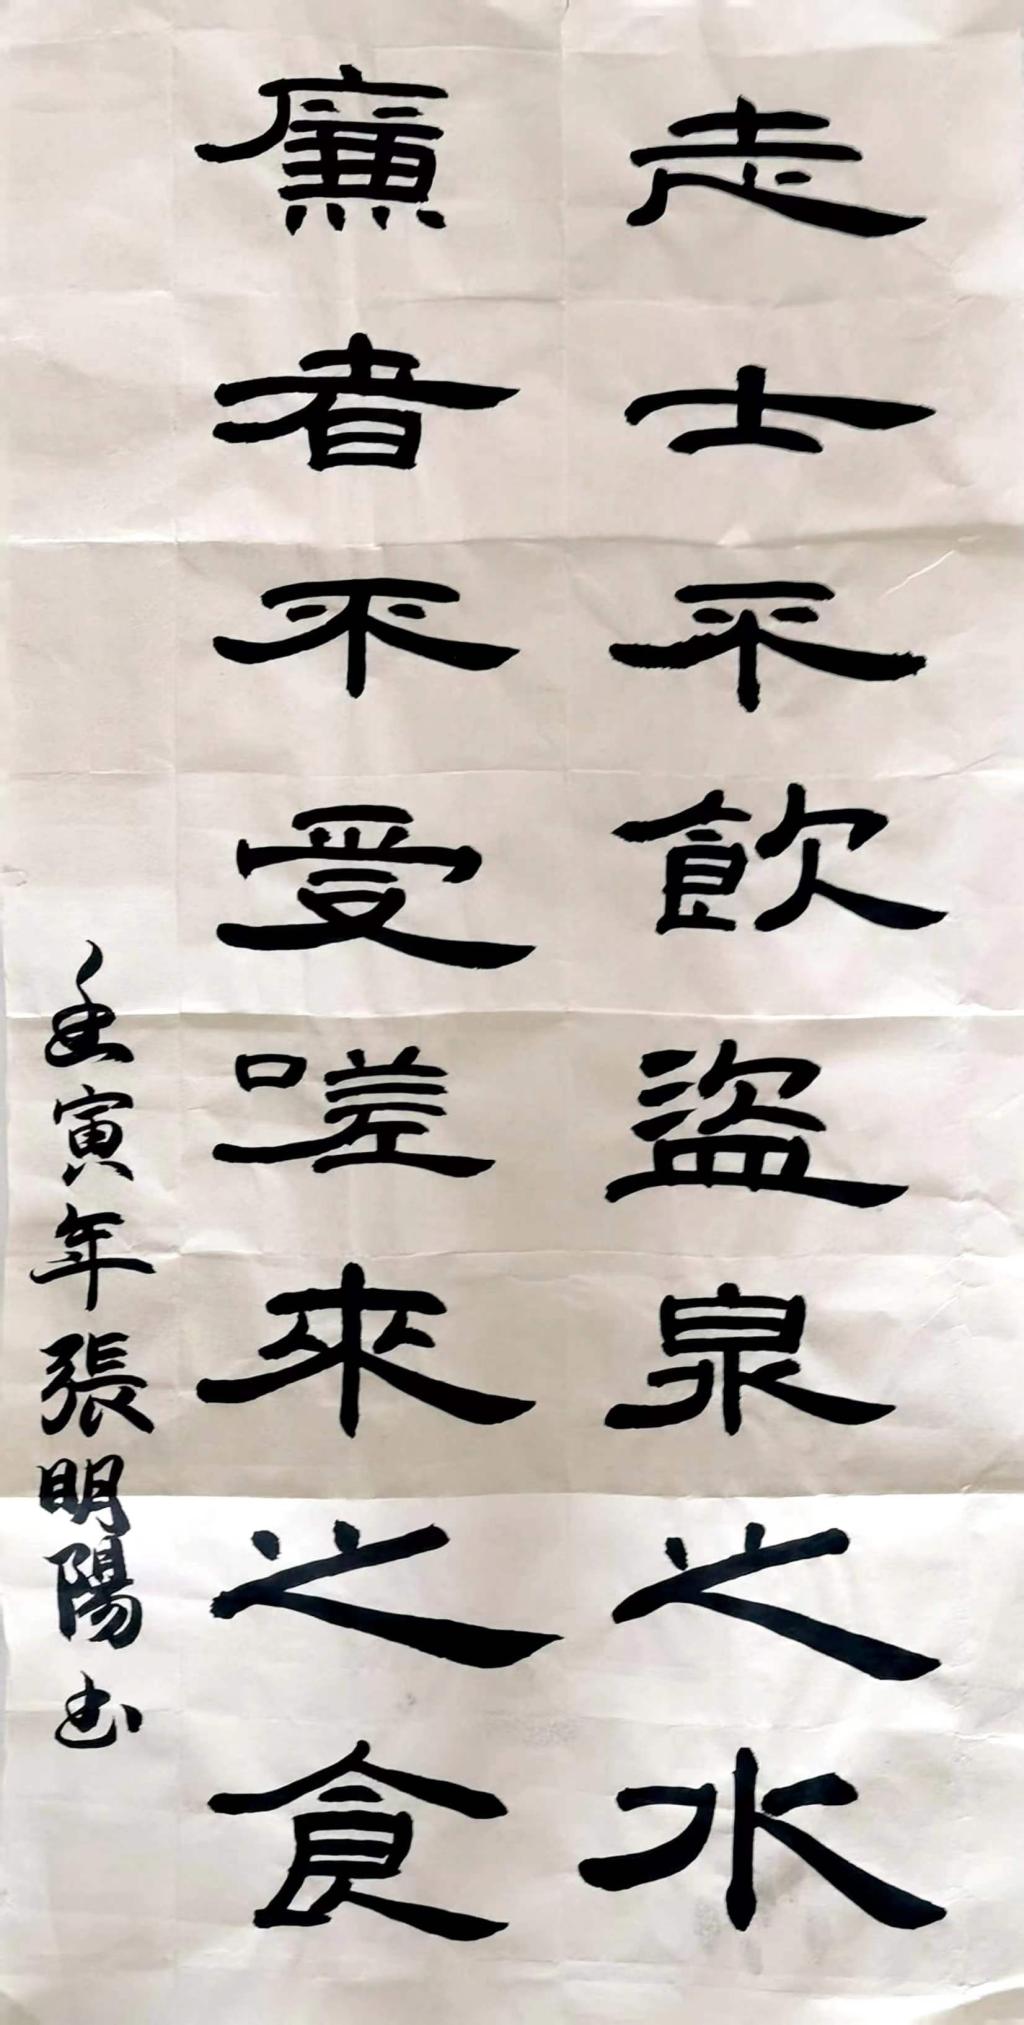 志士不飲盜泉之水
廉者不受嗟來之食
壬寅年張明陽书